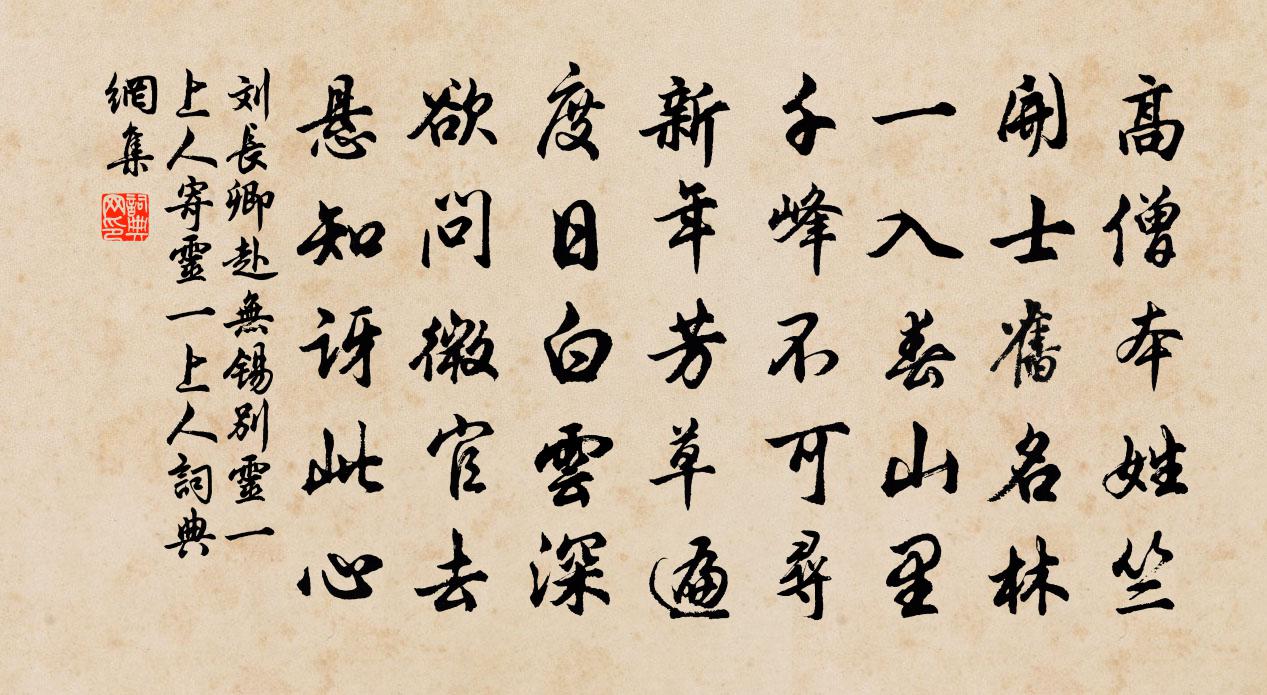 高僧本姓竺
開士舊名林
一入春山里
千峰不可尋
新年芳草遍
度日白雲深
欲問微官去
懸知訝此心
刘長卿赴無锡別靈一
上人寄靈一上人詞典
網集
詞典
网印